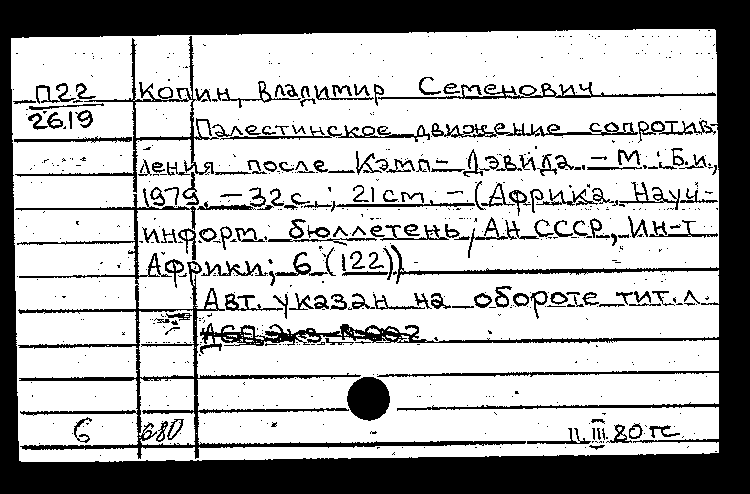 П22 Копин, Владимир Семенович.
2619
Палестинское движение сопротив-
ления после Кэмп-Дэвида. - М.: Б.и.,
1979. - 32 с.; 21 см. - (Африка. Науч.-
информ. бюллетень / АН СССР, Ин-т
Африки; 6 (122))
Авт. указан на обороте тит. л.
6 680 11.III.80 тс